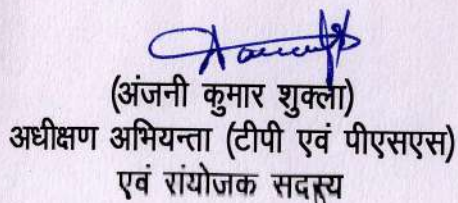 (अंजनी कुमार शुक्ला)
अधीक्षण अभियन्ता (टीपी एवं पीएसएस)
एवं रांयोजक सदस्य